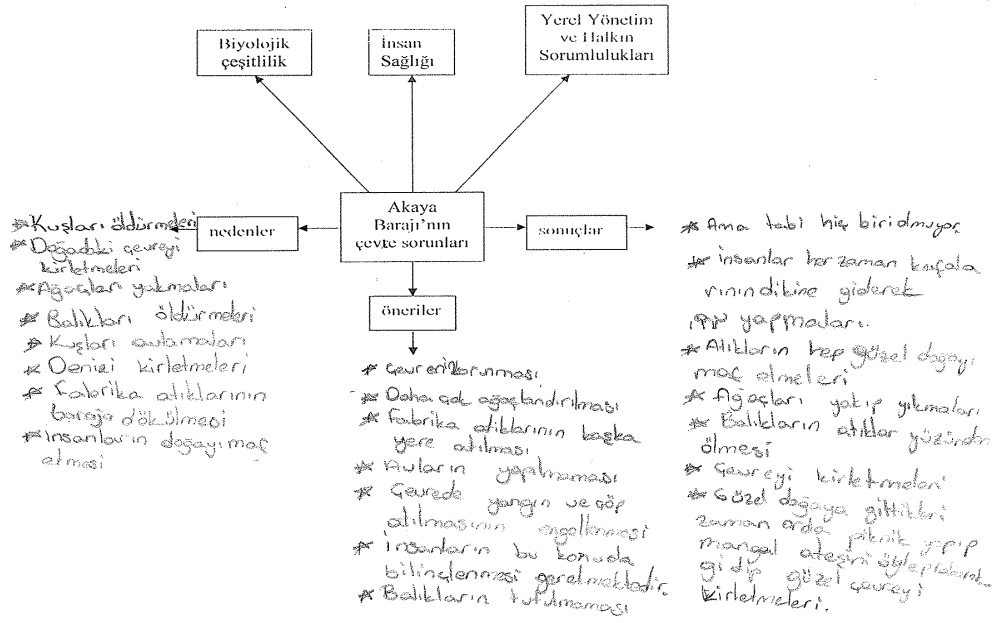 Biyolojik
çeşitlilik
İnsan
Sağlığı
Yerel Yönetim
ve Halkın
Sorumlulukları
Akaya
Barajı'nın
çevre sorunları
nedenler
sonuçlar
öneriler
* Kuşları öldürmeleri
* Doğadaki çevreyi
kirletmeleri
* Ağaçları yakmaları
* Balıkları öldürmeleri
* Kuşları avlamaları
* Denizi kirletmeleri
* Fabrika atıklarının
baraja dökülmesi
* İnsanların doğayı
etmesi
* Çevreni korunması
* Daha çok ağaçlandırılması
* Fabrika atiklarının başka
yere atılması
* Avların yapılmaması
* Çevrede yangın ve çöp
atılmasının engellenmesi
* İnsanların bu konuda
bilinçlenmesi gerekmektedir.
* Balıkların tutulmaması
* Ama tabi hiç biri olmuyor.
* İnsanlar her zaman
dibine giderek
yapmaları.
* Atıkların hep güzel doğayı
etmeleri
* Ağaçları yakıp yıkmaları
* Balıkların atıklar yüzünden
ölmesi
* Çevreyi kirletmeleri
* Güzel doğaya gittikleri
zaman orda piknik yapıp
mangal ateşini öyle
gidip güzel çevreyi
kirletmeleri.